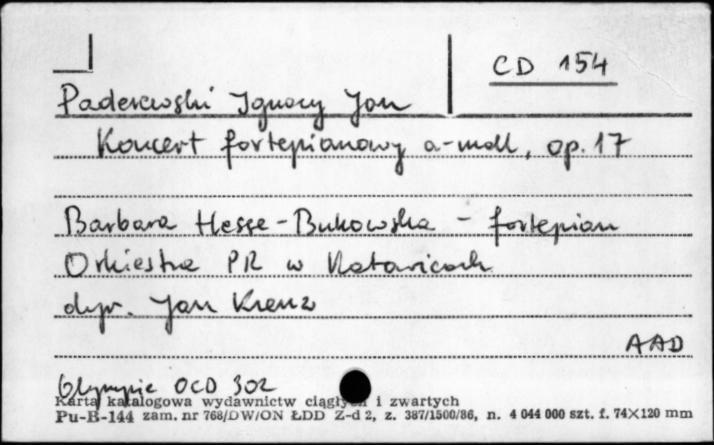 CD 154
Paderewski Ignacy Jan
Koncert fortepianowy a-moll, op. 17
Barbara Hesse-Bukowska - fortepian
Orkiestra PR w Katowicach
dyr. Jan Krenz
AAD
Olympia OCD 302
Karta katalogowa wydawnictw ciągłych i zwartych
Pu-B-144 zam. nr 768/DW/ON ŁDD Z-d 2, z. 387/1500/86, n. 4 044 000 szt. f. 74×120 mm